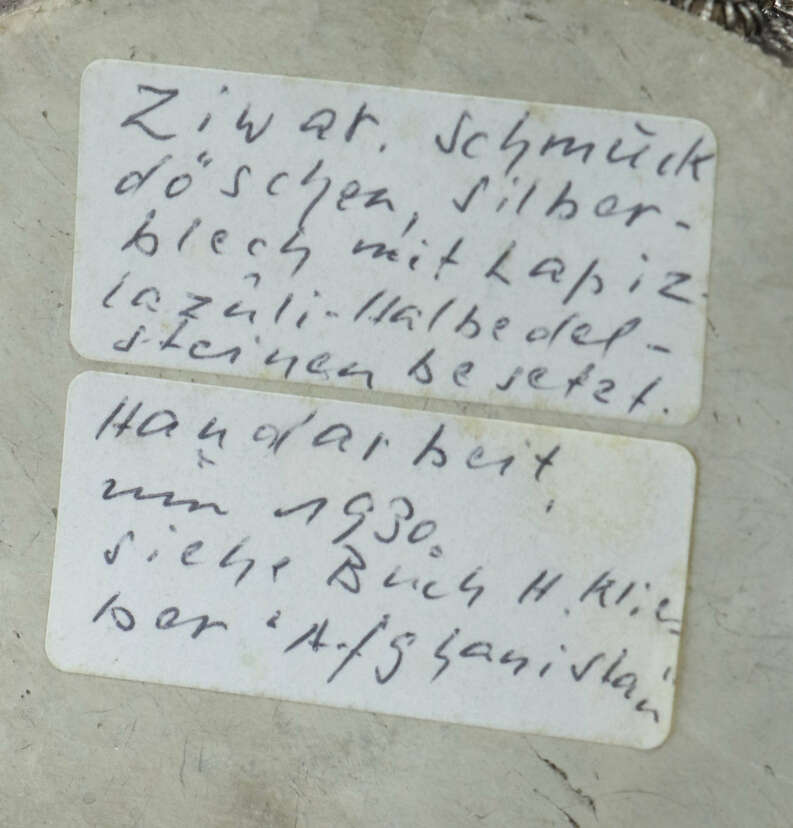 Ziwar. Schmuck
döschen, Silber-
blech mit Lapiz-
lazuli-Halbedel-
steinen besetzt.
Handarbeit,
um 1930.
siehe Buch H. Klie-
ber "Afghanistan"